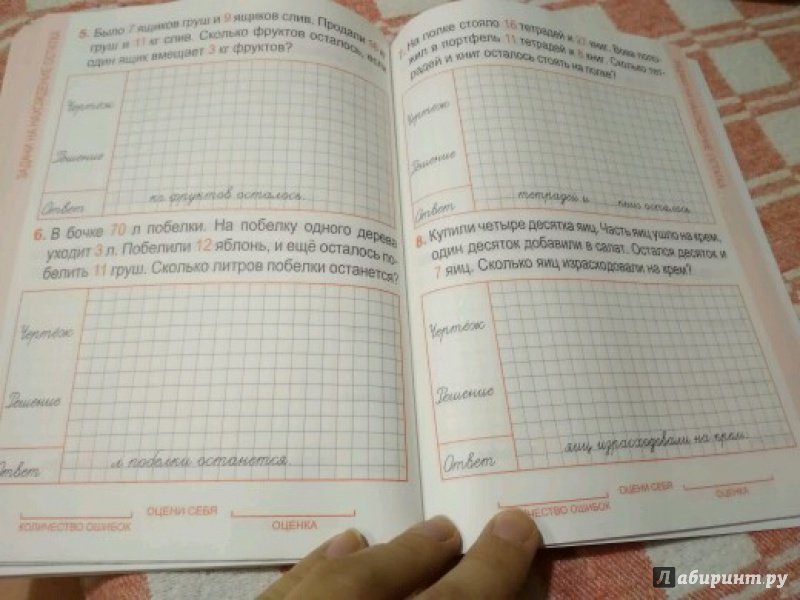 ЗАДАЧИ НА НАХОЖДЕНИЕ
5. Было 7 ящиков груш и 9 ящиков слив. Продали
груш и 11 кг слив. Сколько фруктов осталось, если
один ящик вмещает 3 кг фруктов?
Чертёж
Решение
Ответ
кг фруктов осталось.
6. В бочке 70 л побелки. На побелку одного дерева
уходит 3 л. Побелили 12 яблонь, и ещё осталось по-
белить 11 груш. Сколько литров побелки останется?
Чертёж
Решение
Ответ
л побелки останется.
КОЛИЧЕСТВО ОШИБОК
ОЦЕНИ СЕБЯ
ОЦЕНКА
7. На полке стояло 16 тетрадей и 27 книг. Вова поло-
жил в портфель 11 тетрадей и 8 книг. Сколько тет-
радей и книг осталось стоять на полке?
Чертёж
Решение
Ответ
тетрадей и книг осталось
8. Купили четыре десятка яиц. Часть яиц ушло на крем,
один десяток добавили в салат. Остался десяток и
7 яиц. Сколько яиц израсходовали на крем?
Чертёж
Решение
Ответ
яиц израсходовали на крем.
КОЛИЧЕСТВО ОШИБОК
ОЦЕНИ СЕБЯ
ОЦЕНКА
Лабиринт.ру